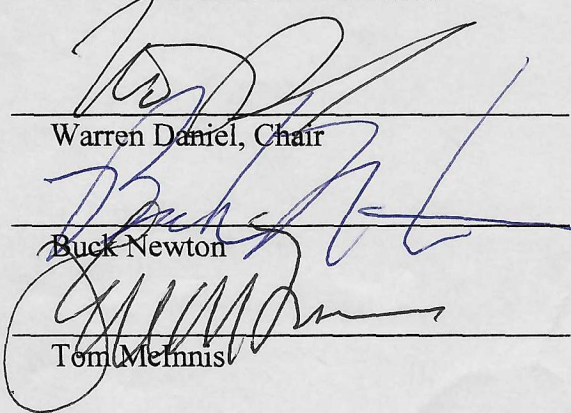 Warren Daniel, Chair
Buck Newton
Tom McInnis